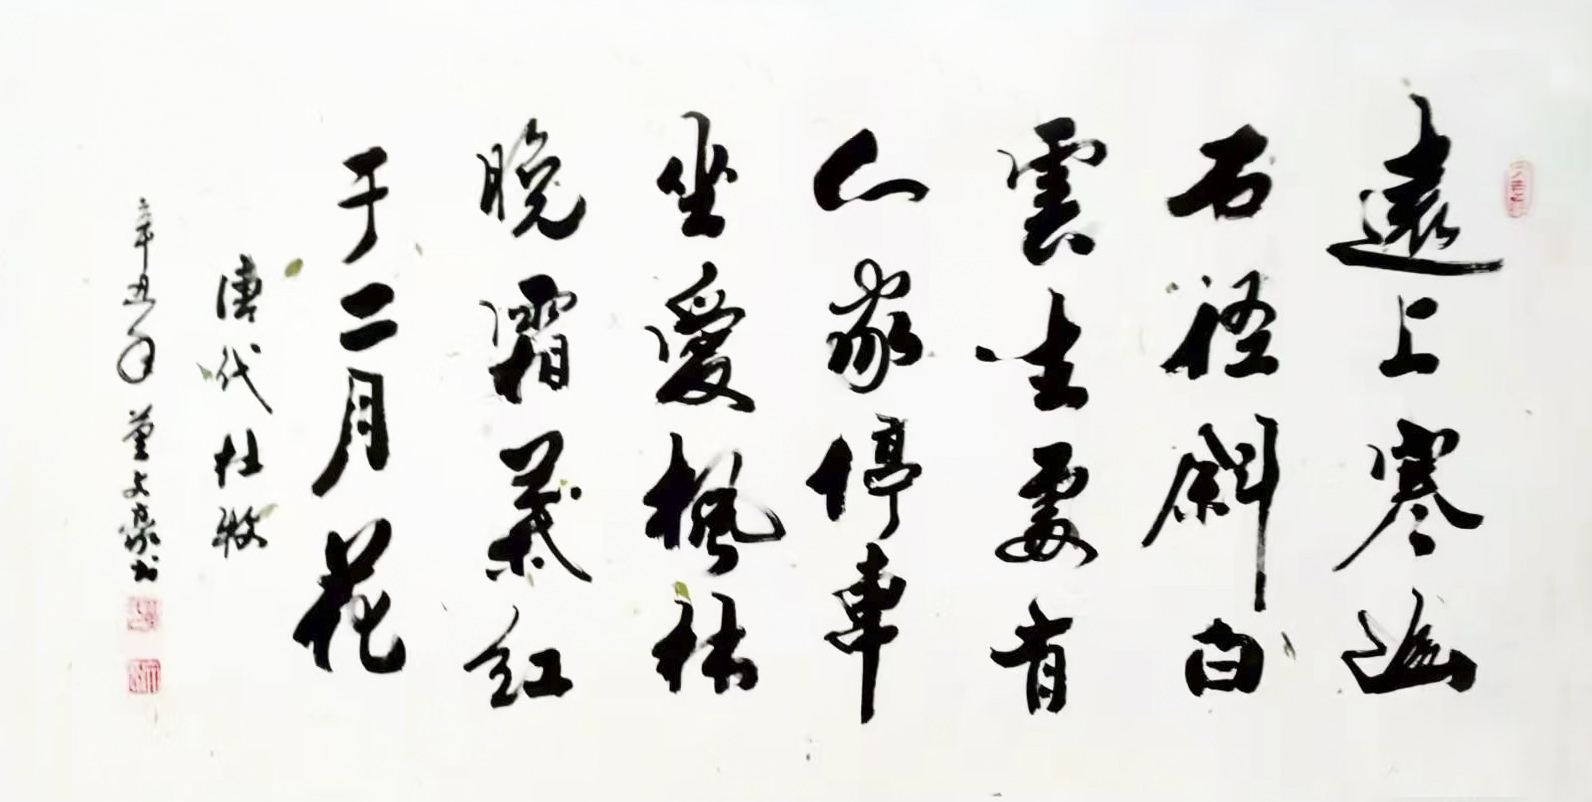 遠上寒山
石径斜白
雲生處有
人家停車
坐愛楓林
晚霜葉红
于二月花
唐代杜牧
辛丑年董文豪书